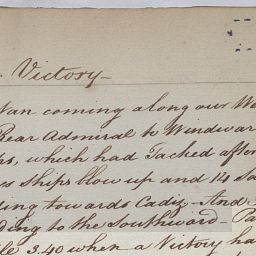 Victory
Van coming along our We
Rear Admiral to Windwar
rs, which had Tacked after
ss Ships blow up and 14 sa
ding towards Cadiz - And 3
ding to the Southward. Pa
ile 3.40 when a Victory ha